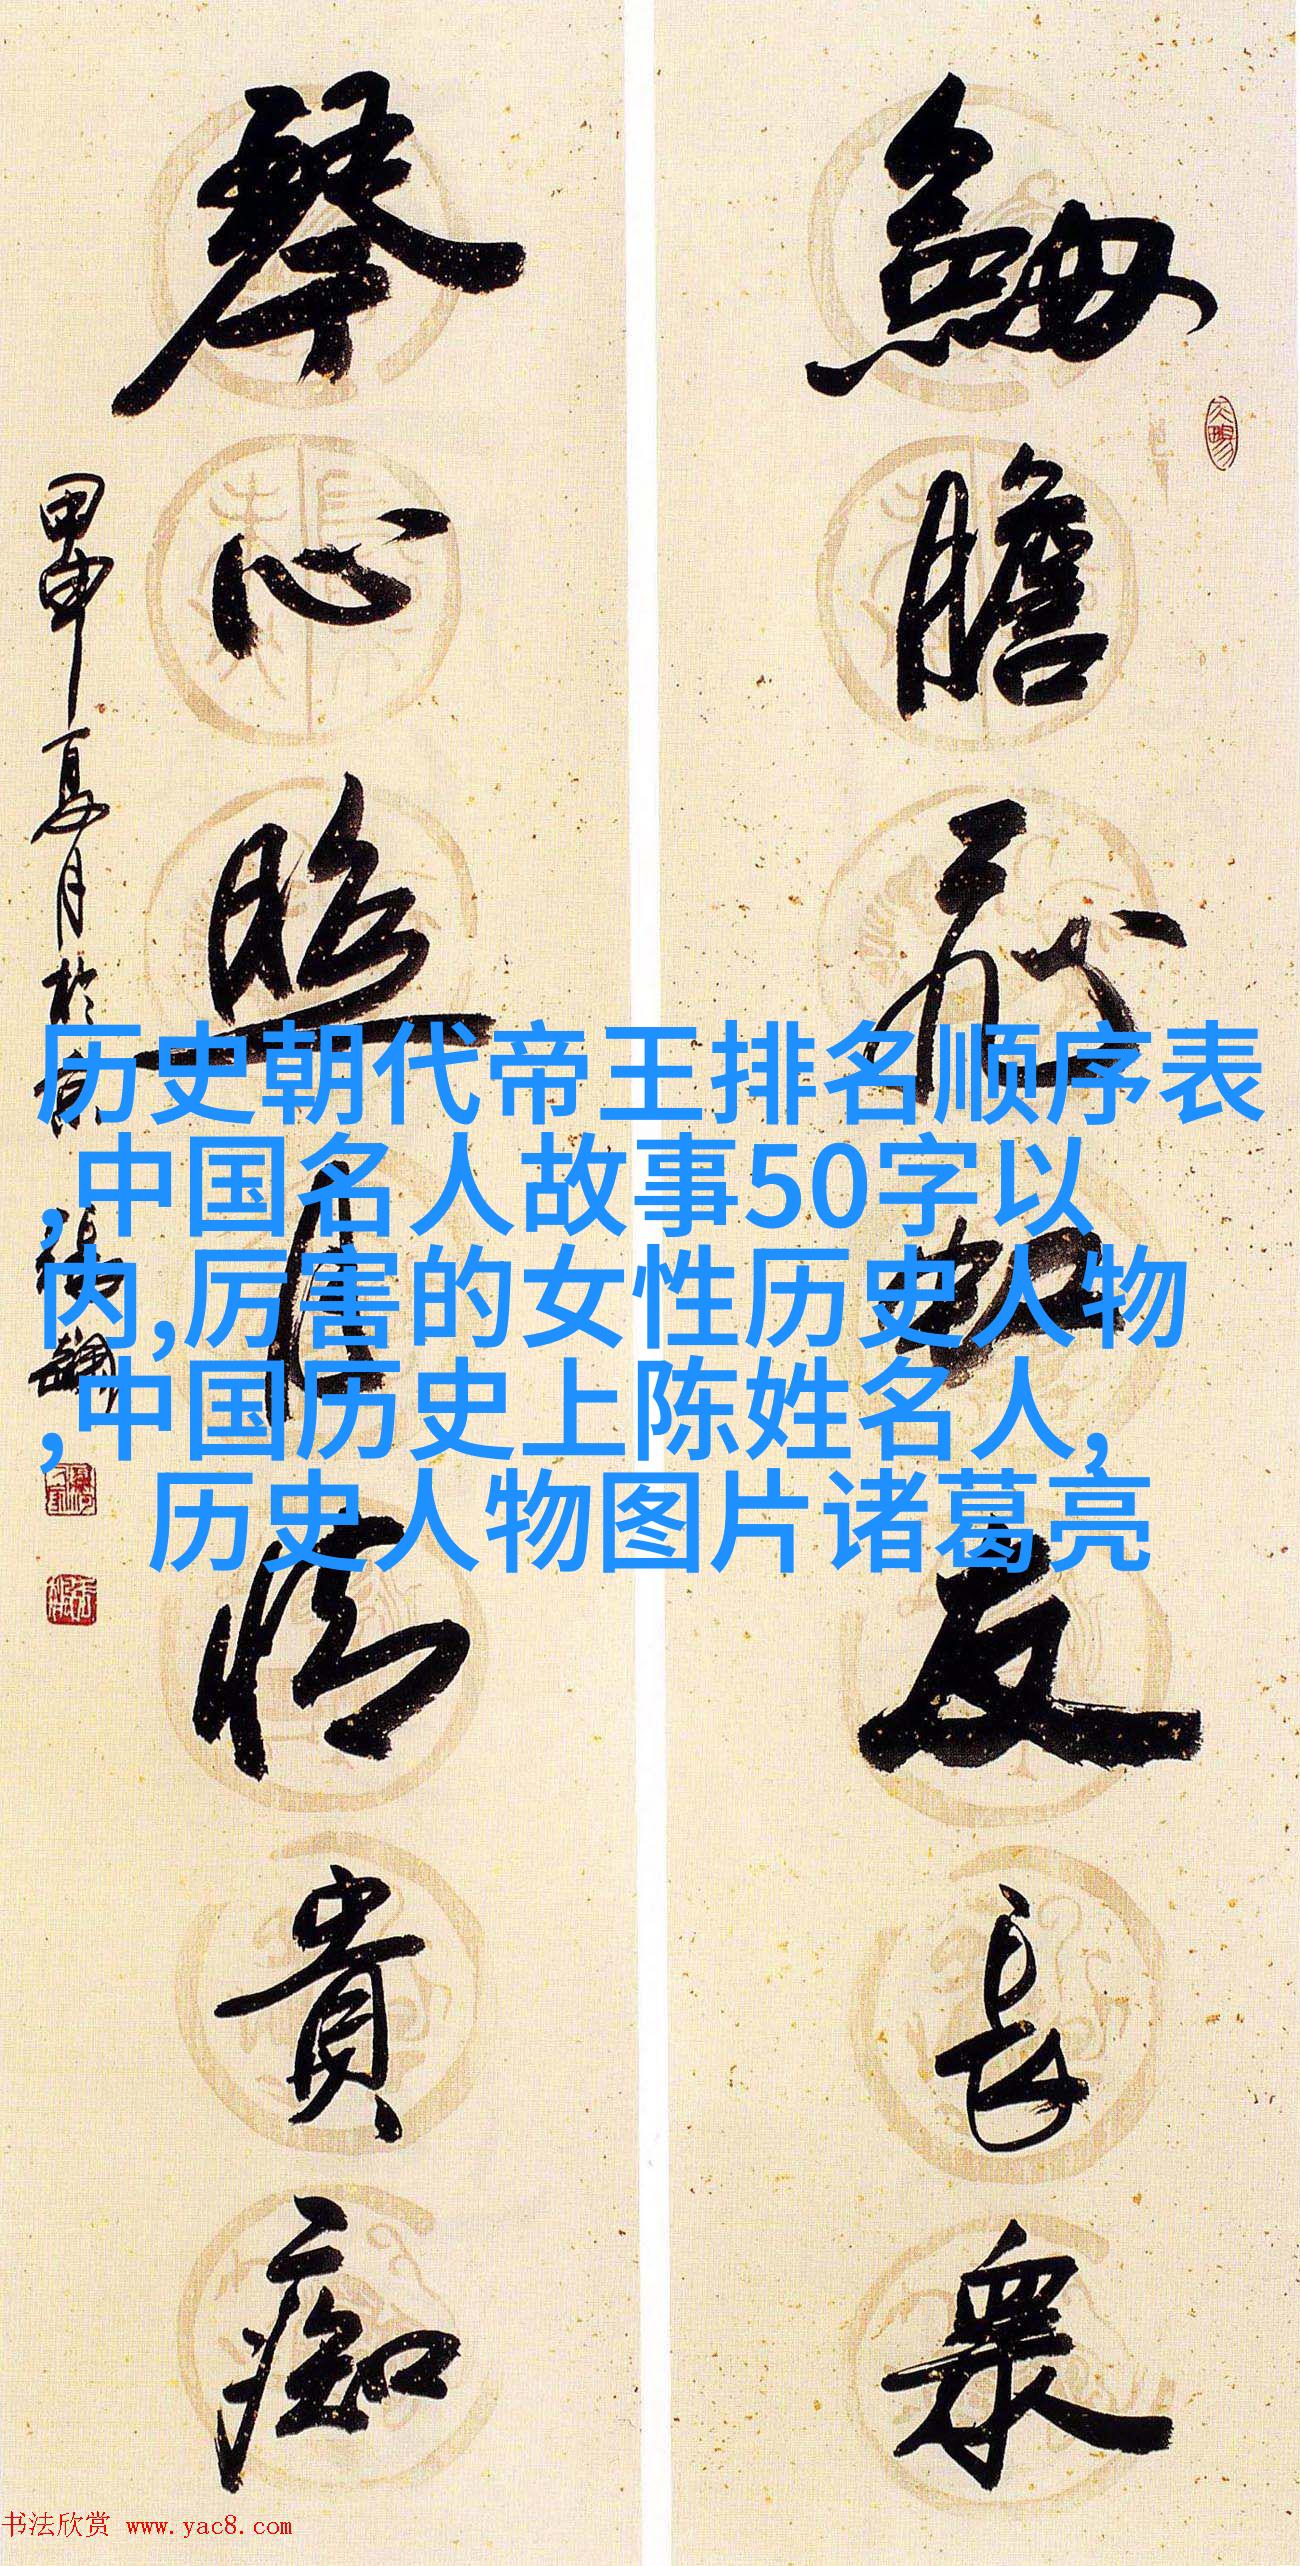 膽 友 長 衆
琴心照月情貴痴
甲申夏月於京
历史朝代帝王排名顺序表
,中国名人故事50字以
内,厉害的女性历史人物
,中国历史上陈姓名人,
历史人物图片诸葛亮
书法欣赏 www.yac8.com